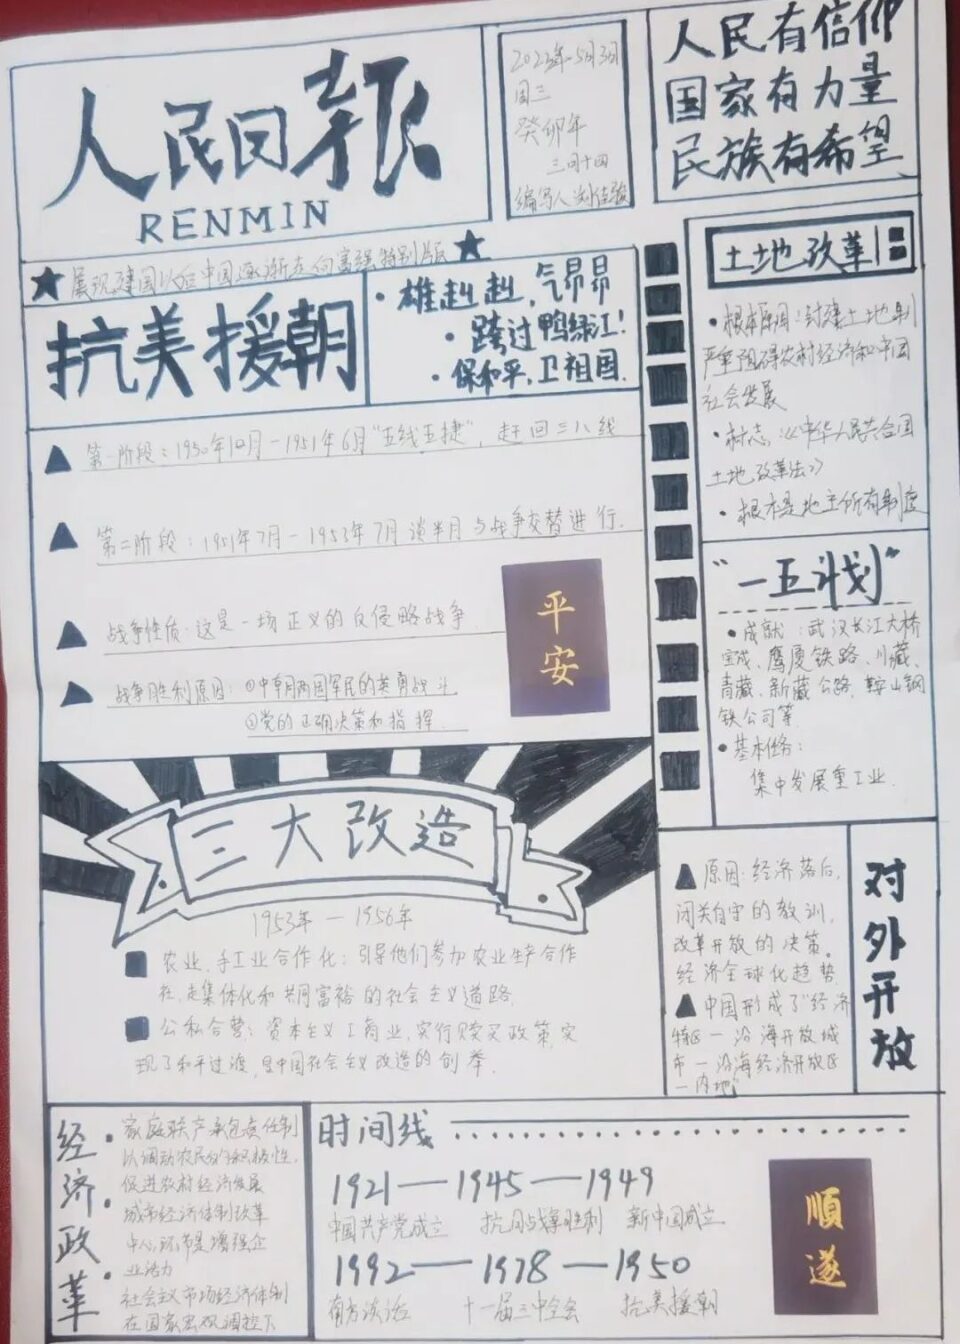 人民日报
RENMIN
2023年5月3日
周三
癸卯年
三月十四
编写人
人民有信仰
国家有力量
民族有希望
展现建国以后中国逐渐走向富强特别版
抗美援朝
·雄赳赳,气昂昂
·跨过鸭绿江!
·保和平,卫祖国.
第一阶段:1950年10月-1951年6月"五线五捷",赶回三八线
第二阶段:1951年7月-1953年7月 谈半月与战争交替进行.
战争性质:这是一场正义的反侵略战争
战争胜利原因:①中朝两国军民的英勇战斗
②党的正确决策和指挥.
平安
土地改革
·根本原因:封建土地制
严重阻碍农村经济和中国
社会发展
·标志:《中华人民共合国
土地改革法》
·根本是地主所有制度
"一五计划"
·成就:武汉长江大桥
宝成、鹰厦铁路、川藏、
青藏、新藏公路,鞍山钢
铁公司等
·基本任务:
集中发展重工业.
三大改造
1953年—1956年
农业、手工业合作化:引导他们参加农业生产合作
社,走集体化和共同富裕的社会主义道路.
公私合营:资本主义工商业,实行赎买政策,实
现了和平过渡,是中国社会主义改造的创举.
对外开放
原因:经济落后,
闭关自守的教训,
改革开放的决策。
经济全球化趋势
中国形成了"经济
特区—沿海开放城
市—沿海经济开放区
—内地"
经济政革
·家庭联产承包责任制
以调动农民的积极性,
促进农村经济发展
·城市经济体制改革
中心环节是增强企
业活力
·社会主义市场经济体制
在国家宏观调控下
时间线
1921—1945—1949
中国共产党成立 抗日战争胜利 新中国成立
1992—1978—1950
南方谈话 十一届三中全会 抗美援朝
順遂